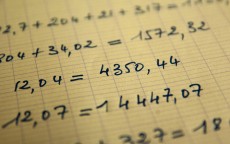 2,7 + 204 + 21 + 317 =
304 + 34,02 = 1572,32
12,04 = 4350,44
12,07 = 14447,07
327 = 18